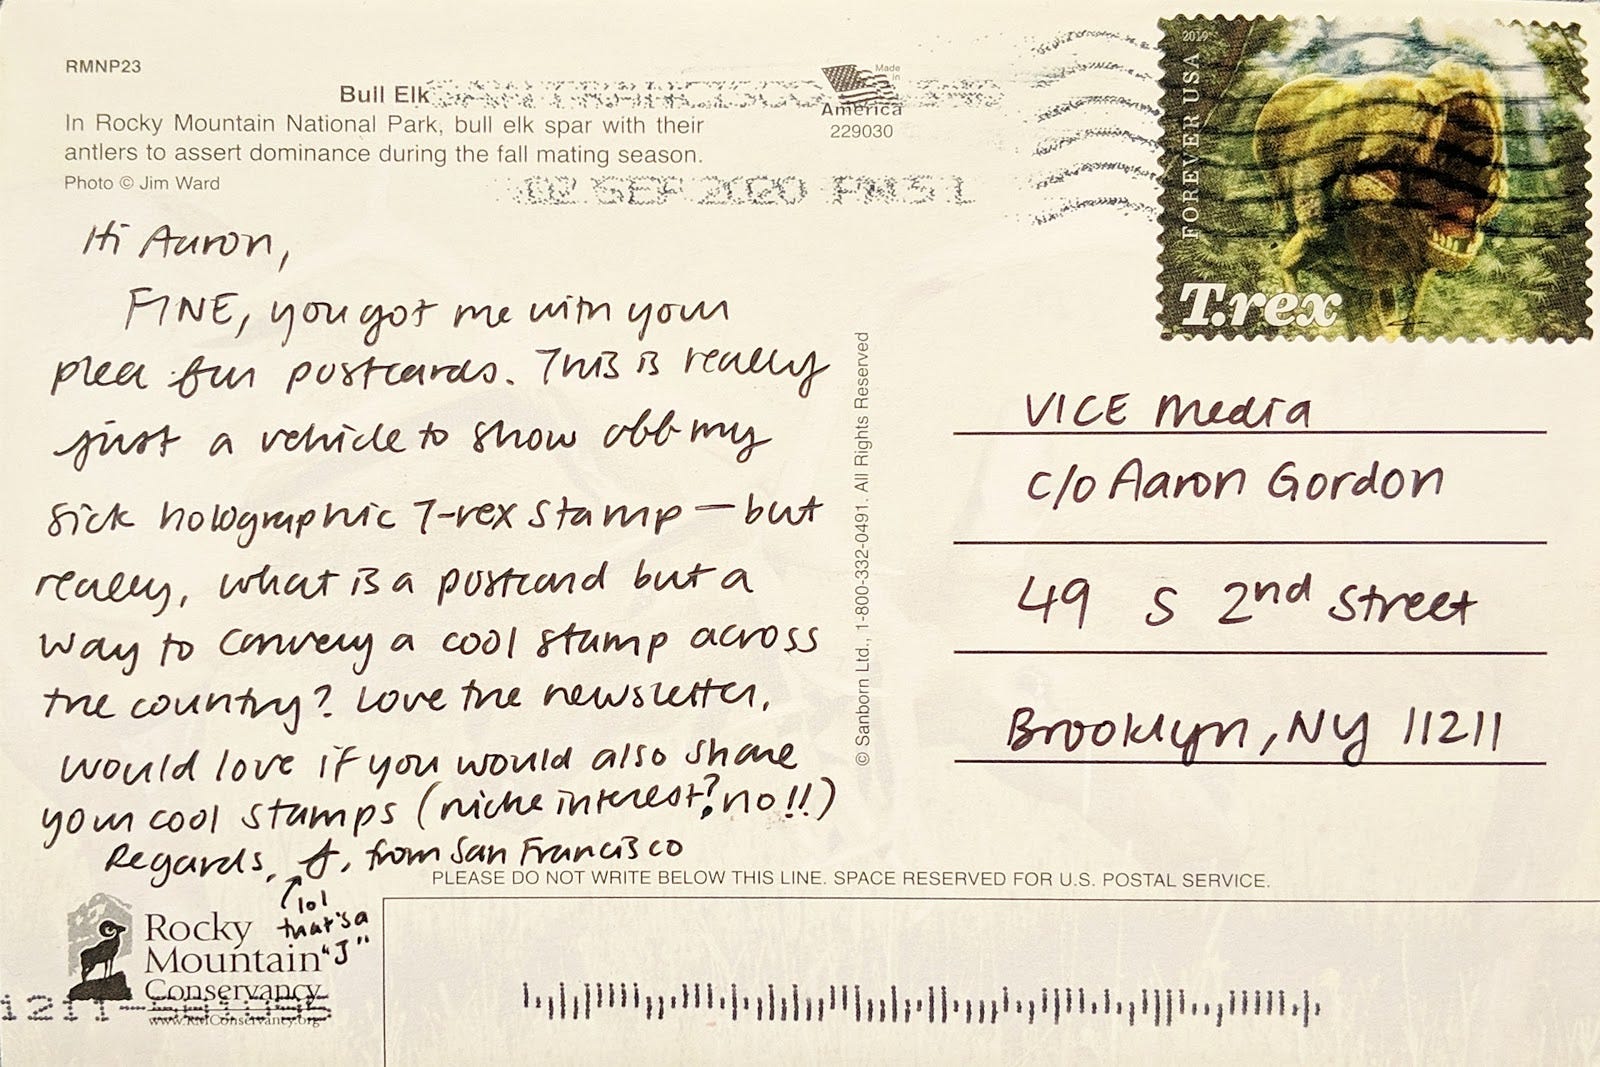 RMNP23
Bull Elk
In Rocky Mountain National Park, bull elk spar with their
antlers to assert dominance during the fall mating season.
Photo © Jim Ward
Made
in
America
229030
SAN FRANCISCO CA 940
02 SEP 2020 PM 5 L
2019
FOREVER USA
T.rex
Hi Aaron,
FINE, you got me with your
plea for postcards. This is really
just a vehicle to show off my
sick holographic T-rex stamp — but
really, what is a postcard but a
way to convey a cool stamp across
the country? Love the newsletter,
would love if you would also share
your cool stamps (niche interest? no!!)
Regards, J, from San Francisco
lol
that's a
"J"
© Sanborn Ltd., 1-800-332-0491. All Rights Reserved
VICE Media
c/o Aaron Gordon
49 S 2nd Street
Brooklyn, NY 11211
PLEASE DO NOT WRITE BELOW THIS LINE. SPACE RESERVED FOR U.S. POSTAL SERVICE.
Rocky
Mountain
Conservancy
www.RMConservancy.org